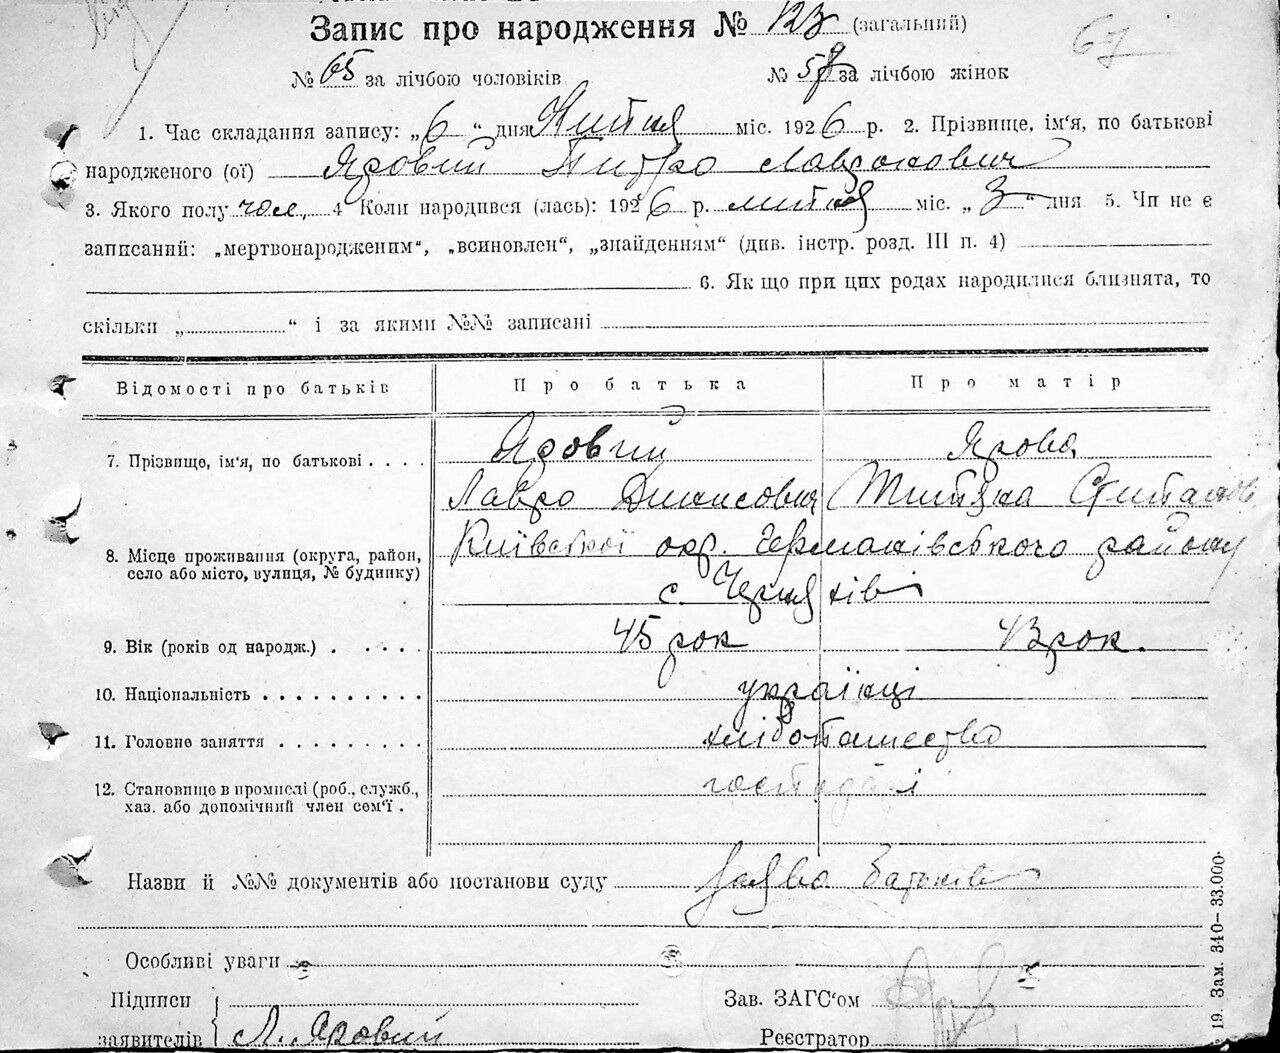 Запис про народження № 123 (загальний)
67
№ 65 за лічбою чоловіків № 58 за лічбою жінок
1. Час складання запису: „6“ дня Липня міс. 1926 р. 2. Прізвище, ім'я, по батькові
народженого (ої) Яровий Питро Лавронович
3. Якого полу чол. 4 Коли народився (лась): 1926 р. липня міс. „3“ дня 5. Чи не є
записаний: „мертвонародженим“, „всиновлен“, „знайденням“ (див. інстр. розд. III п. 4)
6. Як що при цих родах народилися близнята, то
скільки „ “ і за якими №№ записані
Відомості про батьків Про батька Про матір
7. Прізвище, ім'я, по батькові . . . . Яровий Ярова
Лавро Динисович
8. Місце проживання (округа, район, село або місто, вулиця, № будинку) Київської окр. Германівського району
с. Черняхів
9. Вік (років од народж.) . . . . . 45 рок 43 рок.
10. Національність . . . . . . . . . . українці
11. Головне заняття . . . . . . . . . хліботашество
12. Становище в промислі (роб., служб., господарі
хаз. або допомічний член сем'ї .
Назви й №№ документів або постанови суду Заява батьків
Особливі уваги
Підписи Зав. ЗАГС'ом
заявителів Л. Яровий Реєстратор
19. Зам. 340—33.000.